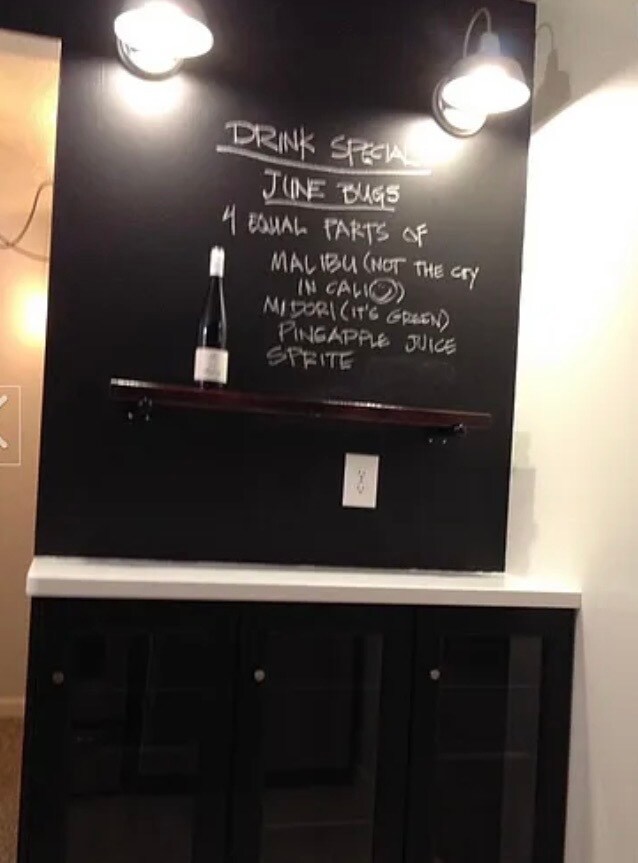 DRINK SPECIAL
JUNE BUGS
4 EQUAL PARTS OF
MALIBU (NOT THE CITY
IN CALI)
MIDORI (IT'S GREEN)
PINEAPPLE JUICE
SPRITE